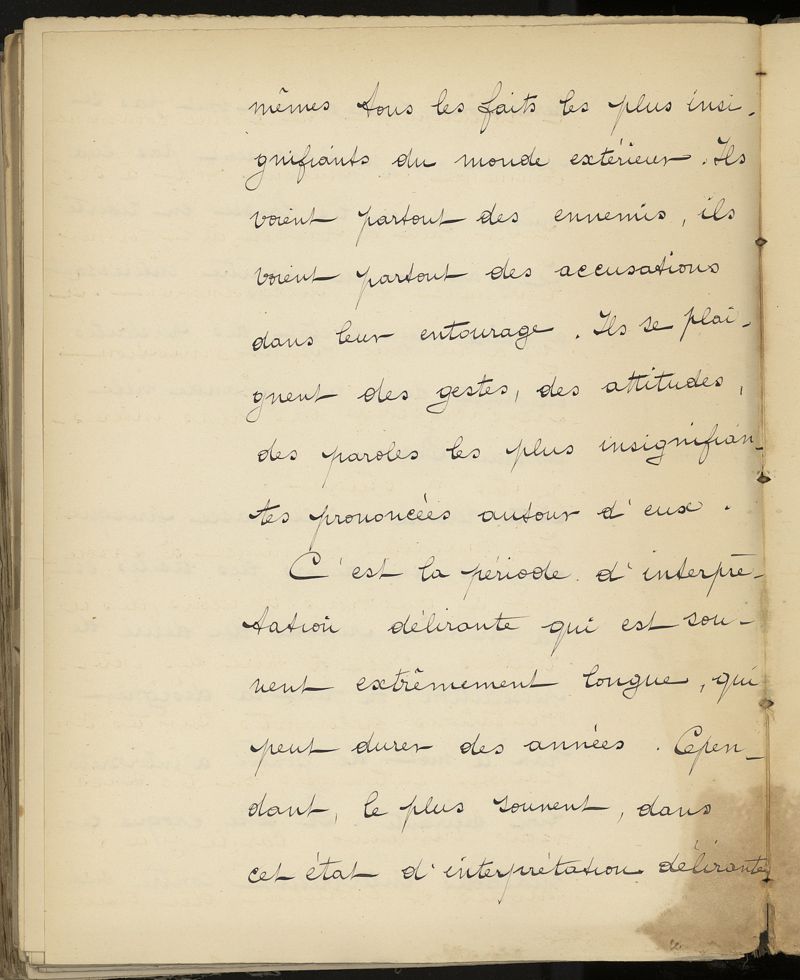 mêmes tous les faits les plus insi-
gnifiants du monde extérieur. Ils
voient partout des ennemis, ils
voient partout des accusations
dans leur entourage. Ils se plai-
gnent des gestes, des attitudes,
des paroles les plus insignifian-
tes prononcées autour d'eux.
C'est la période d'interpré-
tation délirante qui est sou-
vent extrêmement longue, qui
peut durer des années. Cepen-
dant, le plus souvent, dans
cet état d'interprétation délirante